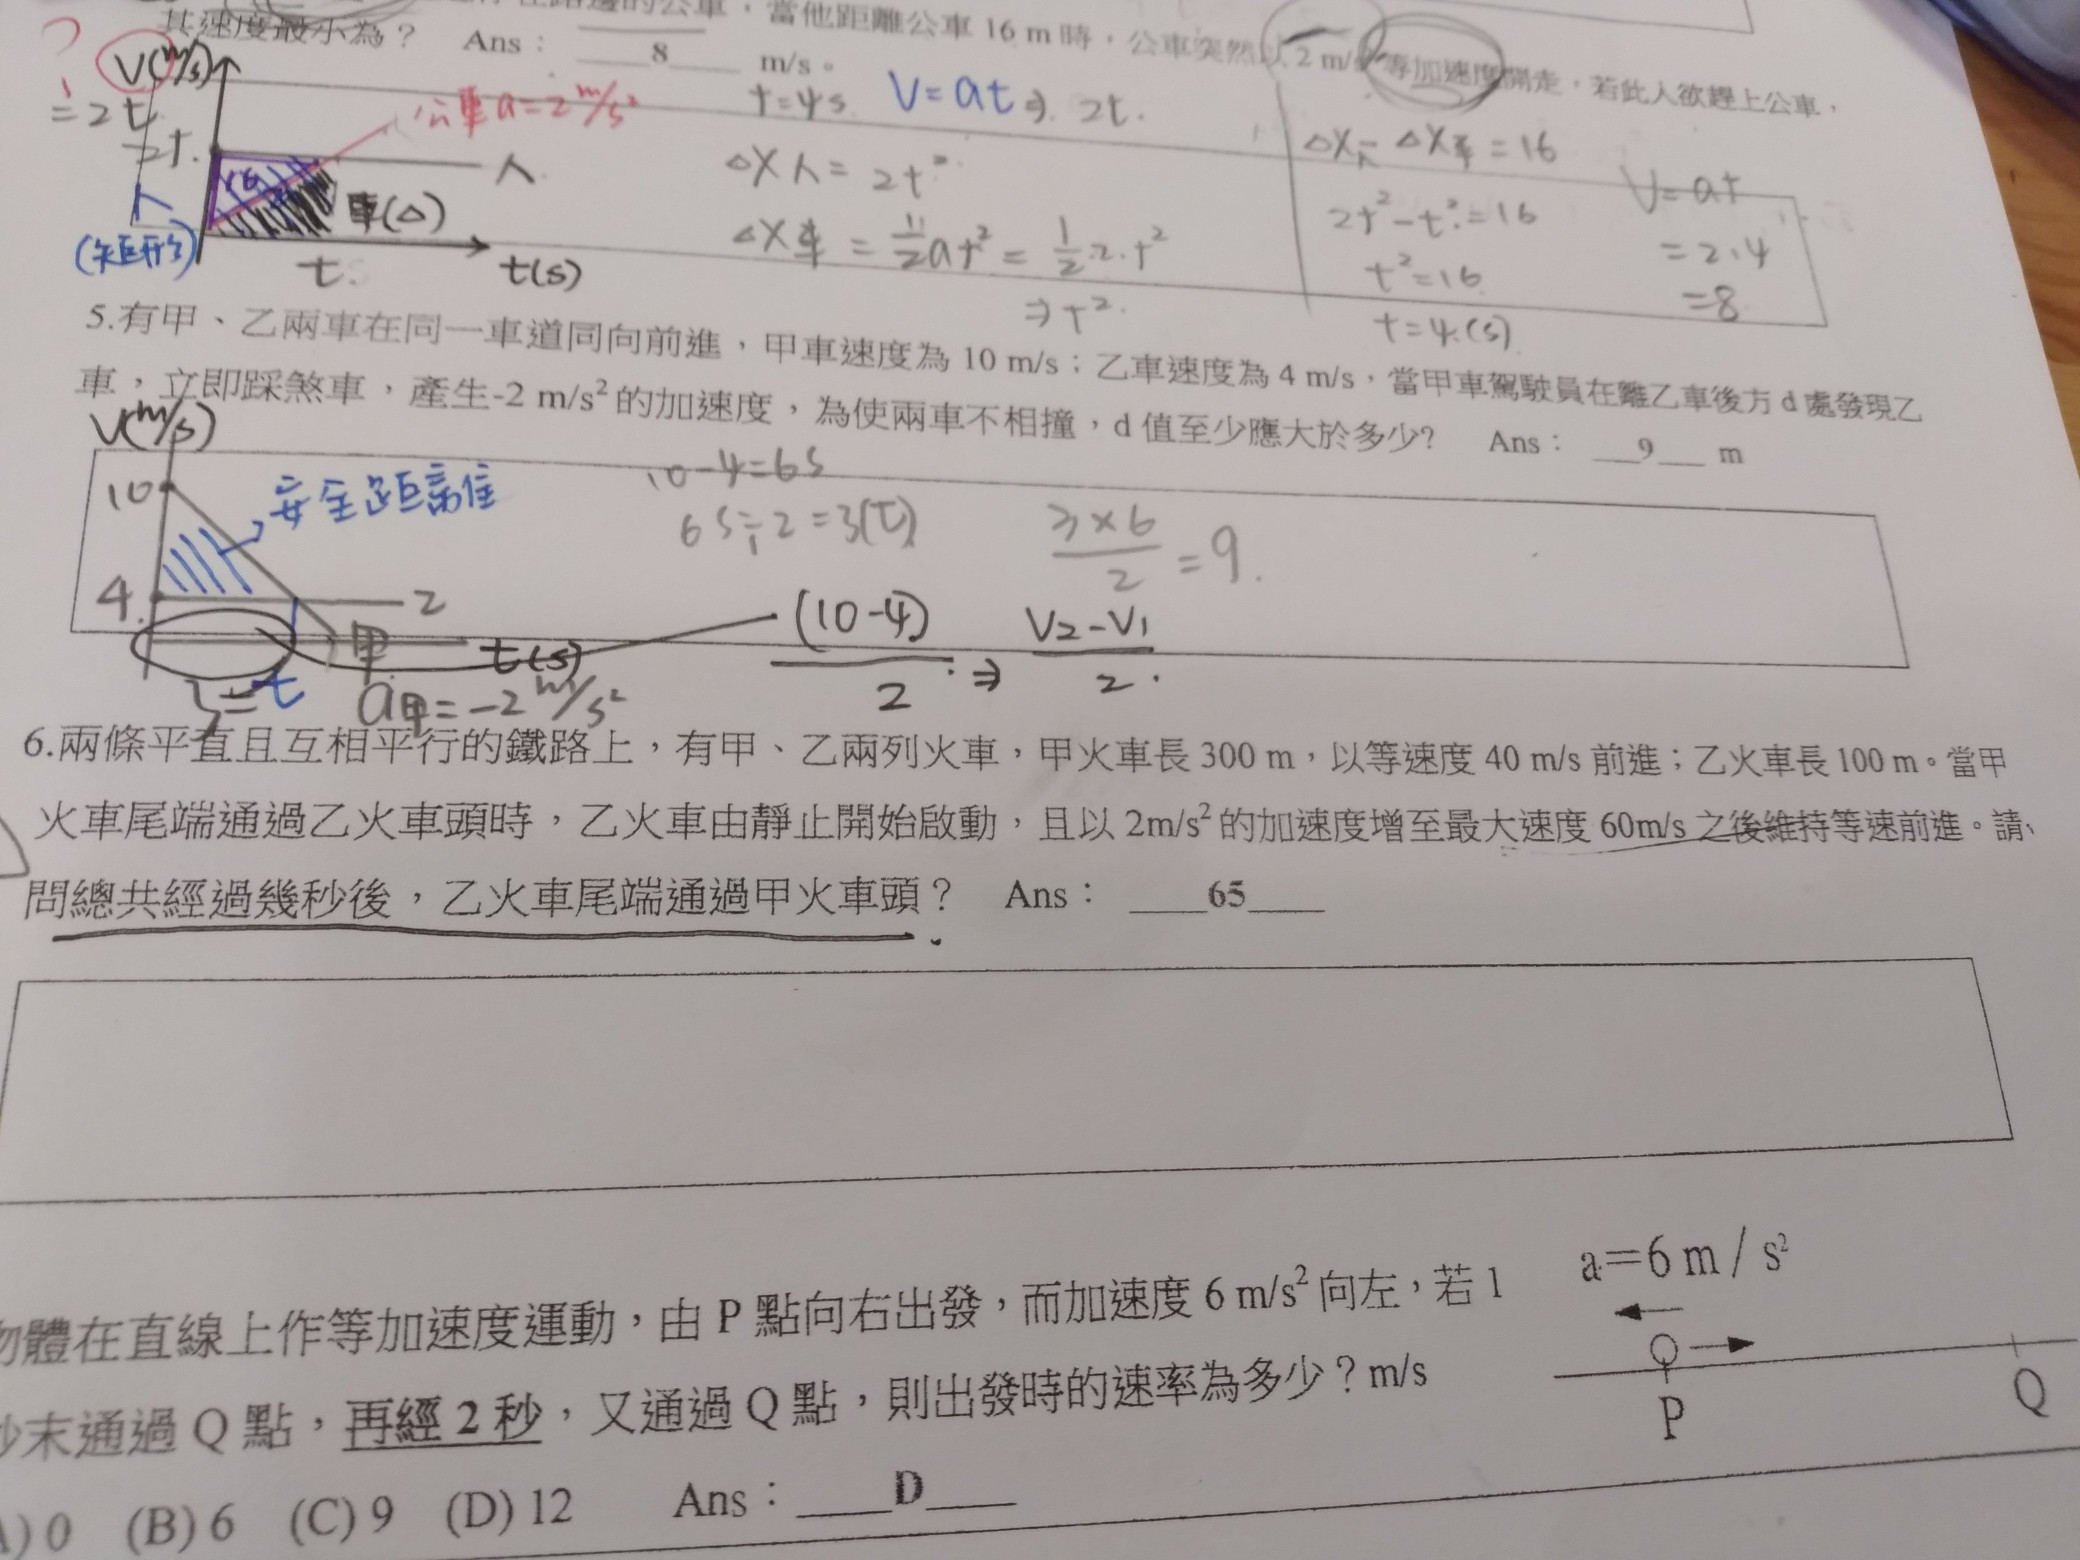 路邊的公車，當他距離公車 16 m 時，公車突然以 2 m/s 等加速度開走，若此人欲趕上公車，
其速度最小為？ Ans： 8 m/s。
?
V(m/s)
= 2t
2t.
人
(矩形)
16
公車 a=2 m/s²
人
車(△)
t
t(s)
t=4s V=at⇒ 2t.
△X人= 2t²
△X車 = 1/2at² = 1/2·2·t²
⇒t².
△X人-△X車=16
2t²-t²=16
t²=16
t=4(s)
V=at
=2·4
=8
5.有甲、乙兩車在同一車道同向前進，甲車速度為 10 m/s；乙車速度為 4 m/s，當甲車駕駛員在離乙車後方 d 處發現乙
車，立即踩煞車，產生-2 m/s²的加速度，為使兩車不相撞，d 值至少應大於多少? Ans： 9 m
V(m/s)
10
安全距離
4
乙
甲
t(s)
=t
a甲=-2 m/s²
10-4=6s
6s÷2=3(t)
3×6/2 =9.
(10-4)/2 ⇒ V2-V1/2.
6.兩條平直且互相平行的鐵路上，有甲、乙兩列火車，甲火車長 300 m，以等速度 40 m/s 前進；乙火車長 100 m。當甲
火車尾端通過乙火車頭時，乙火車由靜止開始啟動，且以 2m/s²的加速度增至最大速度 60m/s 之後維持等速前進。請
問總共經過幾秒後，乙火車尾端通過甲火車頭？ Ans： 65
物體在直線上作等加速度運動，由 P 點向右出發，而加速度 6 m/s²向左，若 1
秒末通過 Q 點，再經 2 秒，又通過 Q 點，則出發時的速率為多少？m/s
A) 0 (B) 6 (C) 9 (D) 12 Ans： D
a=6 m / s²
P
Q